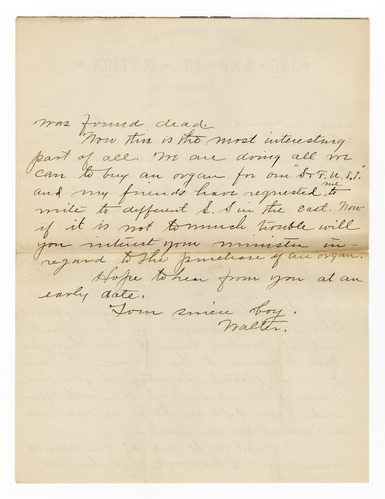 was found dead.
Now this is the most interesting
part of all. We are doing all we
can to buy an organ for our "
and my friends have requested me to
write to different S. S in the east. Now
if it is not to much trouble will
you interest your minister in-
regard to the purchase of an organ.
Hope to hear from you at an
early date.
Your sincere boy.
Walter.